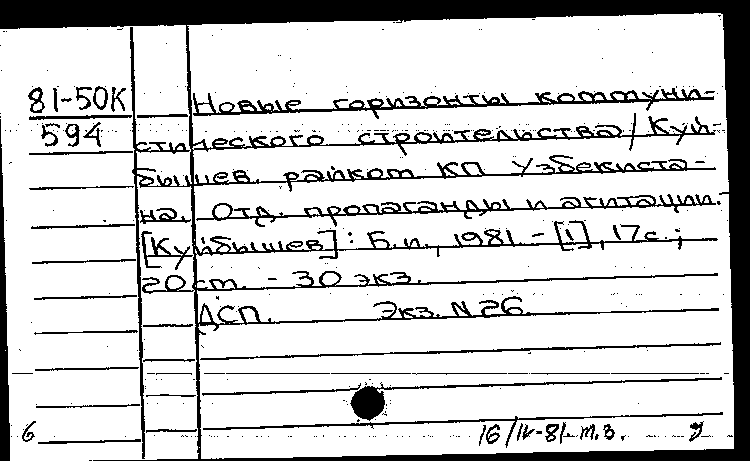 81-50К Новые горизонты коммуни-
594 стического строительства / Куй-
бышев. райком КП Узбекиста-
на. Отд. пропаганды и агитации.-
[Куйбышев]: Б.и., 1981. - [1], 17с.;
20 ст. - 30 экз.
ДСП. Экз. N 26.
6 16/IV-81 т.з.